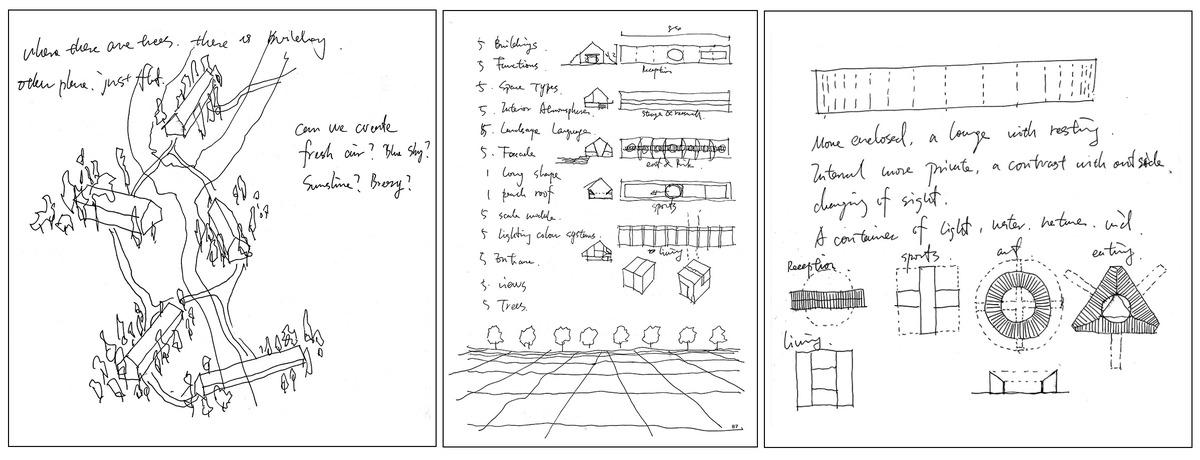 where there are trees. there is building.
other place. just flat.
can we create
fresh air? Blue sky?
Sunshine? Breezy?
5 Buildings.
5 Functions.
5. Space Types.
5. Interior Atmospheres.
5. Landscape Language.
5. Facade
1 long shape
1 pitch roof
5 scale module.
5 lighting colour systems.
5 Entrance.
5. views
5 Trees.
Reception
sports
living
87
More enclosed, a lounge with resting.
Internal more private, a contrast with outside.
changing of sight.
A container of light, water, nature, wind.
Reception
sports
art
eating
living.